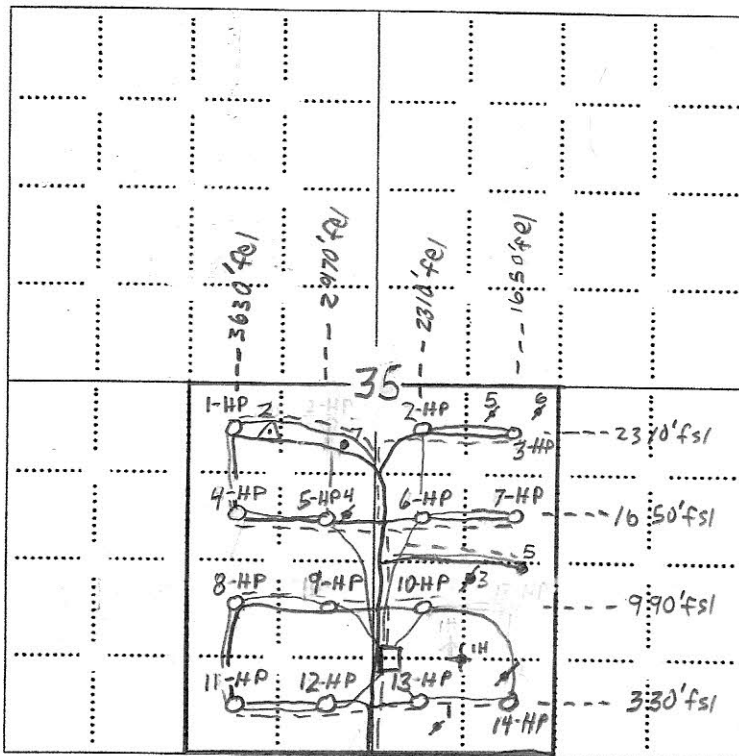 3630'fel
2970'fel
2310'fel
1650'fel
35
1-HP
2
7
2-HP
5
6
3-HP
2310'fsl
4-HP
5-HP
4
6-HP
7-HP
1650'fsl
5
3
8-HP
9-HP
10-HP
990'fsl
1H
11-HP
12-HP
13-HP
1
14-HP
330'fsl